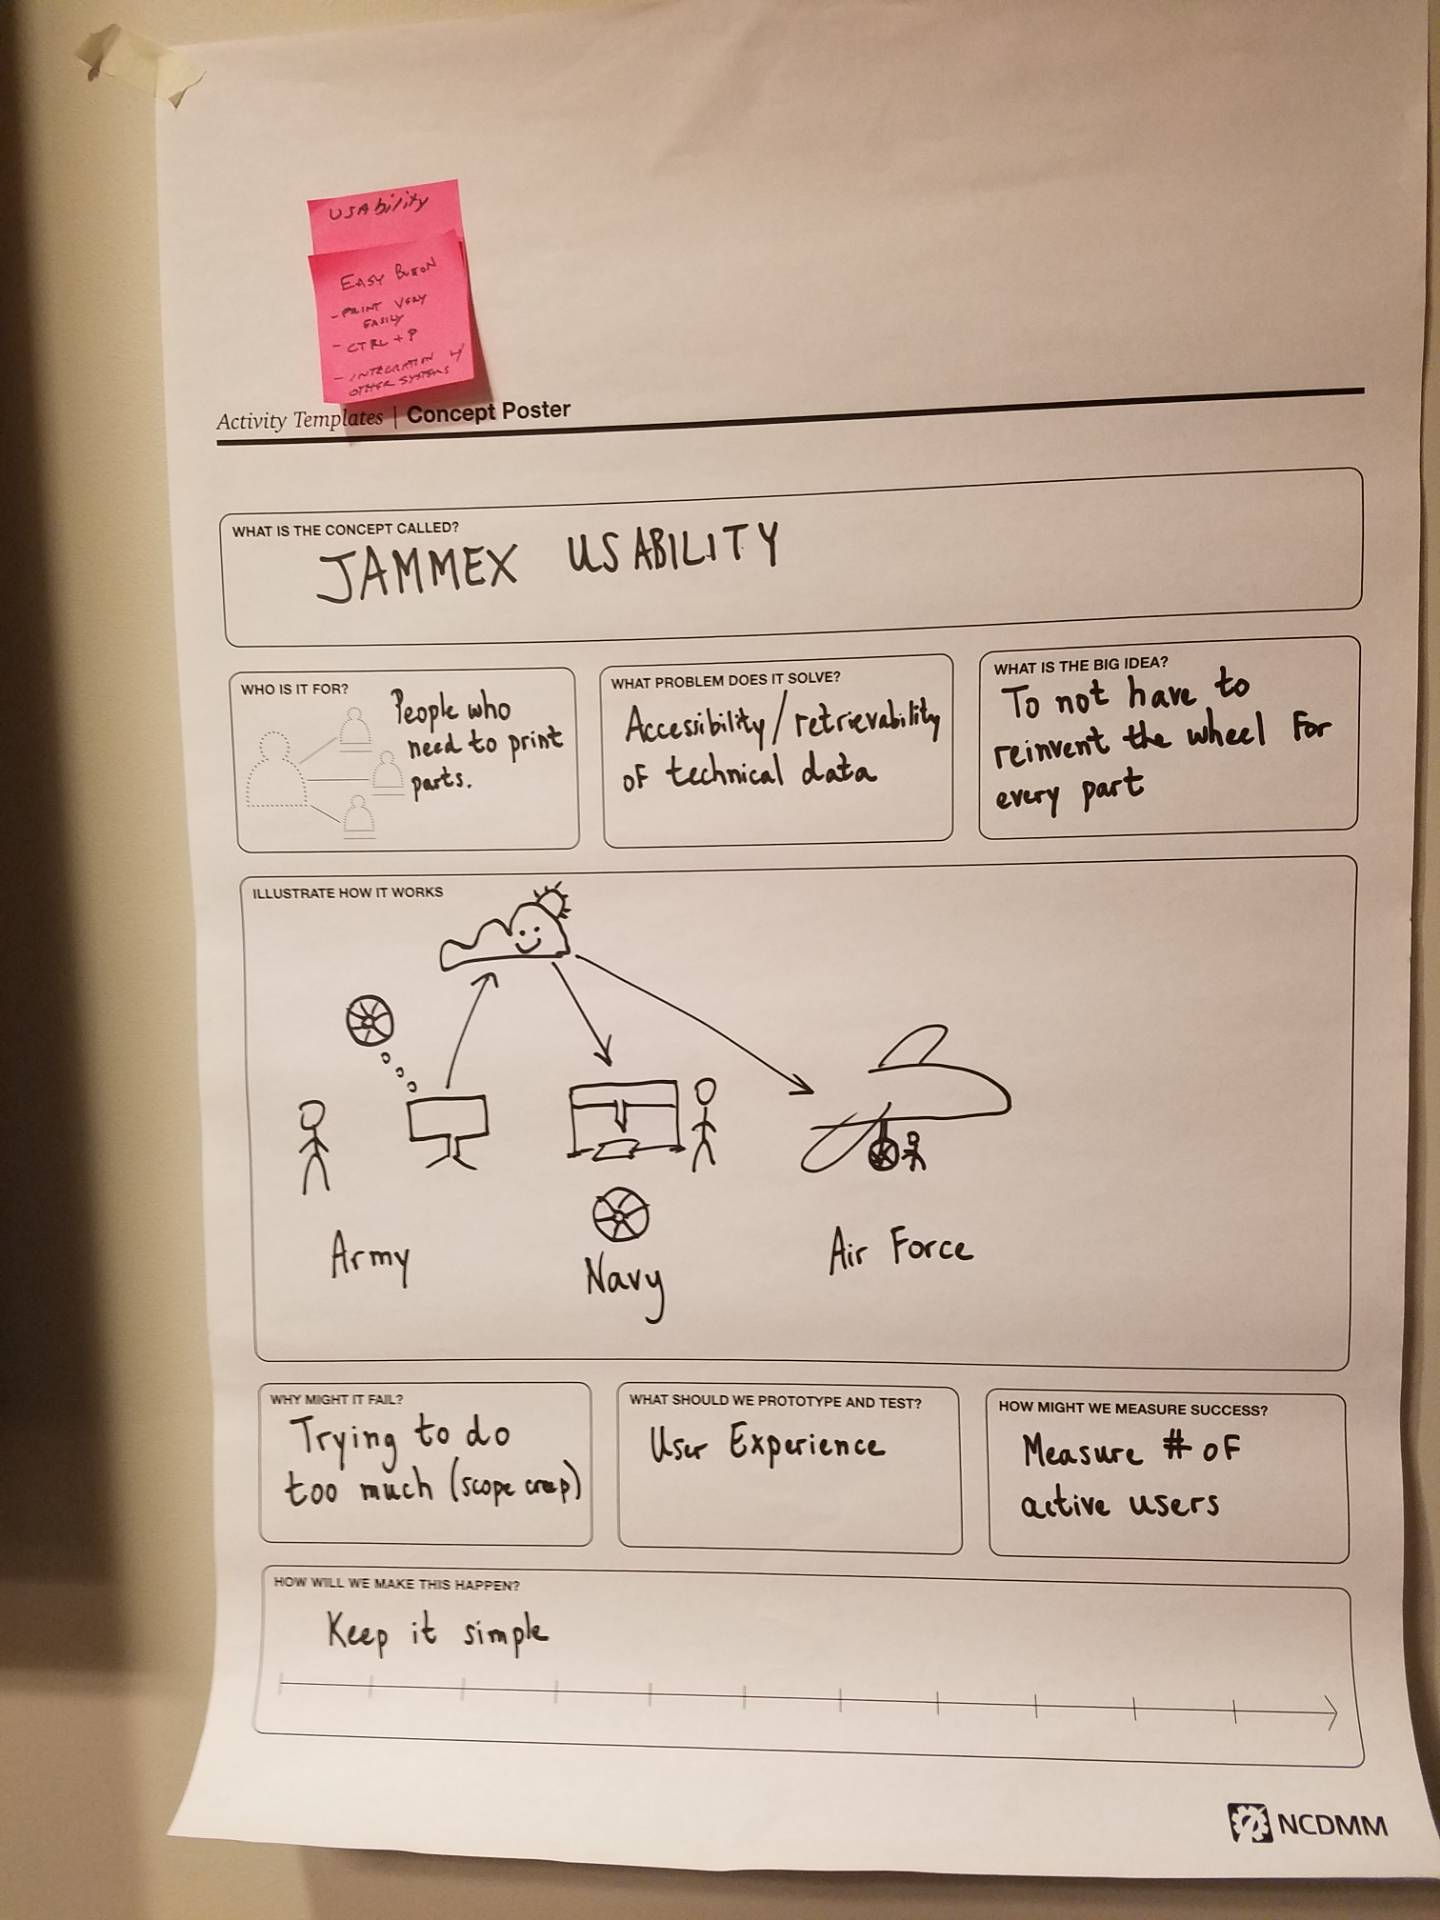 USAbility
EASY BUTTON
- PRINT VERY
EASILY
- CTRL + P
- INTEGRATION W/
OTHER SYSTEMS
Activity Templates | Concept Poster
WHAT IS THE CONCEPT CALLED?
JAMMEX USABILITY
WHO IS IT FOR?
People who
need to print
parts.
WHAT PROBLEM DOES IT SOLVE?
Accessibility/retrievability
of technical data
WHAT IS THE BIG IDEA?
To not have to
reinvent the wheel for
every part
ILLUSTRATE HOW IT WORKS
Army
Navy
Air Force
WHY MIGHT IT FAIL?
Trying to do
too much (scope creep)
WHAT SHOULD WE PROTOTYPE AND TEST?
User Experience
HOW MIGHT WE MEASURE SUCCESS?
Measure # of
active users
HOW WILL WE MAKE THIS HAPPEN?
Keep it simple
NCDMM